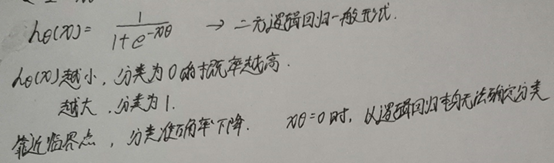 hθ(x) = 1/(1+e^-xθ) → 二元逻辑回归一般形式.
hθ(x)越小,分类为0的概率越高.
越大,分类为1.
靠近临界点,分类准确率下降. xθ=0时,从逻辑回归本身无法确定分类